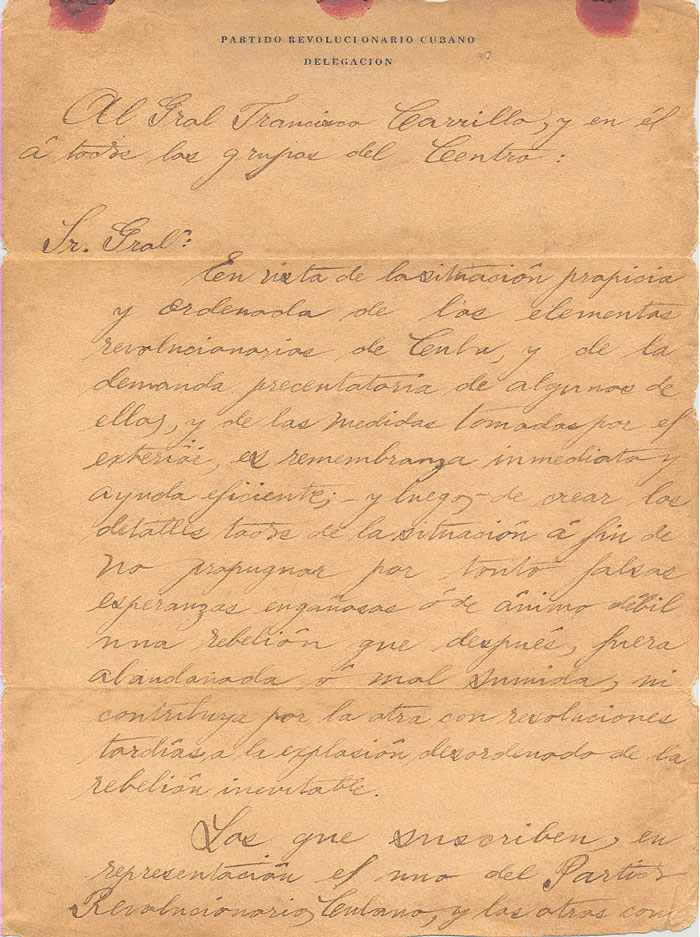 PARTIDO REVOLUCIONARIO CUBANO
DELEGACION
Al Gral Francisco Carrillo, y en él
á todos los grupos del Centro:
Sr. Gral:
En vista de la situación propicia
y ordenada de los elementos
revolucionarios de Cuba, y de la
demanda precentatoria de algunos de
ellos, y de las medidas tomadas por el
exterior, es remembranza inmediata y
ayuda eficiente; – y luego, de crear los
detalles todos de la situación á fin de
no propugnar por tonto falsas
esperanzas engañosas ó de ánimo débil
una rebelión que después, fuera
abandonada ó mal sumida, ni
contribuya por la otra con resoluciones
tardías, a la explosión desordenado de la
rebelión inevitable.
Los que suscriben, en
representación el uno del Partido
Revolucionario Cubano, y los otros con